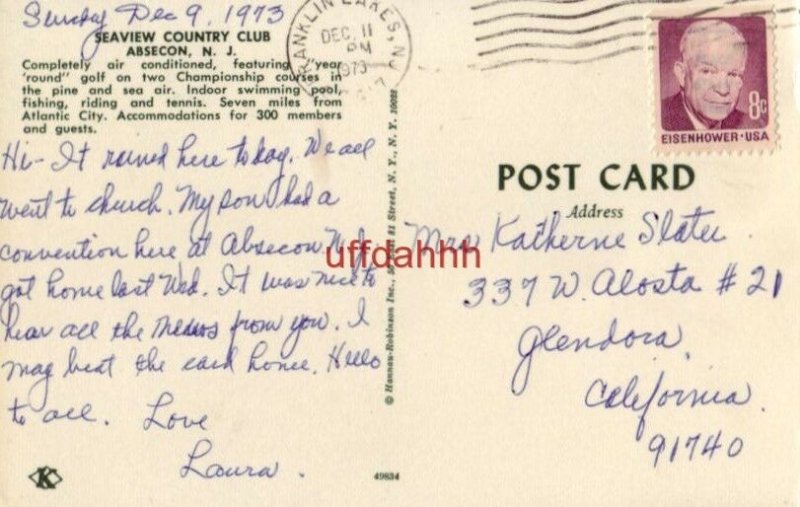 Sunday Dec 9, 1973
SEAVIEW COUNTRY CLUB
ABSECON, N. J.
Completely air conditioned, featuring "year
'round" golf on two Championship courses in
the pine and sea air. Indoor swimming pool,
fishing, riding and tennis. Seven miles from
Atlantic City. Accommodations for 300 members
and guests.
Hi- It rained here today. We all
went to church. My son had a
convention here at Absecon N.J.
got home last Wed. It was nice to
hear all the news from you. I
may beat the card home. Hello
to all. Love
Laura.
K
49834
© Hannau-Robinson Inc., 81 Street, N. Y., N. Y. 10022
FRANKLIN LAKES, NJ
DEC. 11
PM
1973
EISENHOWER·USA
8c
POST CARD
Address
Mrs Katherne Slater
337 W. Alosta # 21
Glendora,
California.
91740
uffdahhh